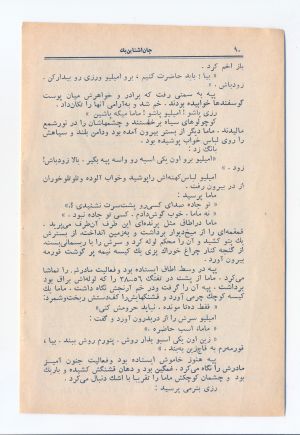 ۹۰ جان‌اشتاین‌بك
باز اخم کرد .
« بیا ؛ باید حاضرت کنیم ، برو امیلیو ورزی رو بیدارکن .
زودباش . »
پپه به سمتی رفت که برادر و خواهرش میان پوست
گوسفندها خوابیده بودند . خم شد و به‌آرامی آنها را تکان‌داد .
رزی پاشو ! امیلیو پاشو ! ماما میگه پاشین »
کوچولوهای سیاه برخاستند و چشمهاشان را در نورشمع
مالیدند . ماما دیگر از بستر بیرون آمده بود ودامن بلند و سیاهش
را روی لباس خواب پوشیده بود .
بانگ زد :
«امیلیو برو اون یکی اسبه رو واسه پپه بگیر . یالا زودباش!
زود . »
امیلیو لباس کهنه‌اش راپوشید وخواب آلوده وتلوتلوخوران
از در بیرون رفت .
ماما پرسید :
« تو جاده صدای کسی‌رو پشت‌سرت نشنیدی ؟ »
« نه ماما . خوب گوش‌دادم . کسی تو جاده نبود . »
ماما دراطاق مثل پرنده‌ای این طرف آن‌طرف می‌پرید .
قمقمه‌ای را از میخ‌دیوار برداشت و به‌زمین انداخت. از بسترش
یك پتو کشید و آن را محکم لوله کرد و سرش را با ریسمانی‌بست.
از گنجه کنار چراغ خوراك پزی یك کیسه نیمه پر گوشت قورمه
بیرون آورد .
پپه در وسط اطاق ایستاده بود وفعالیت مادرش را تماشا
می‌کرد . ماما از پشت در تفنگ ۵۶ـ۳۸ را که لوله‌اش براق بود
برداشت . پپه آن را گرفت ودر خم آرنجش نگاه داشت . ماما یك
کیسه کوچك چرمی آورد و فشنگهایش راکف‌دستش ریخت‌وشمرد:
« فقط ده‌تا مونده . نباید حرومش کنی»
امیلیو سرش را از دربدرون آورد و گفت :
« ماما، اسب حاضره . »
« زین اون یکی اسبو بذار روش . پتورم روش ببند . بیا ،
قورمه‌رم به قاچ‌زین ببند . »
پپه هنوز خاموش ایستاده بود وفعالیت جنون آمیز
مادرش را نگاه می‌کرد . غمگین بود و دهان قشنگش کشیده و باریك
بود و چشمان کوچکش ماما را تقریبا با اشك دنبال می‌کرد .
رزی بنرمی پرسید :